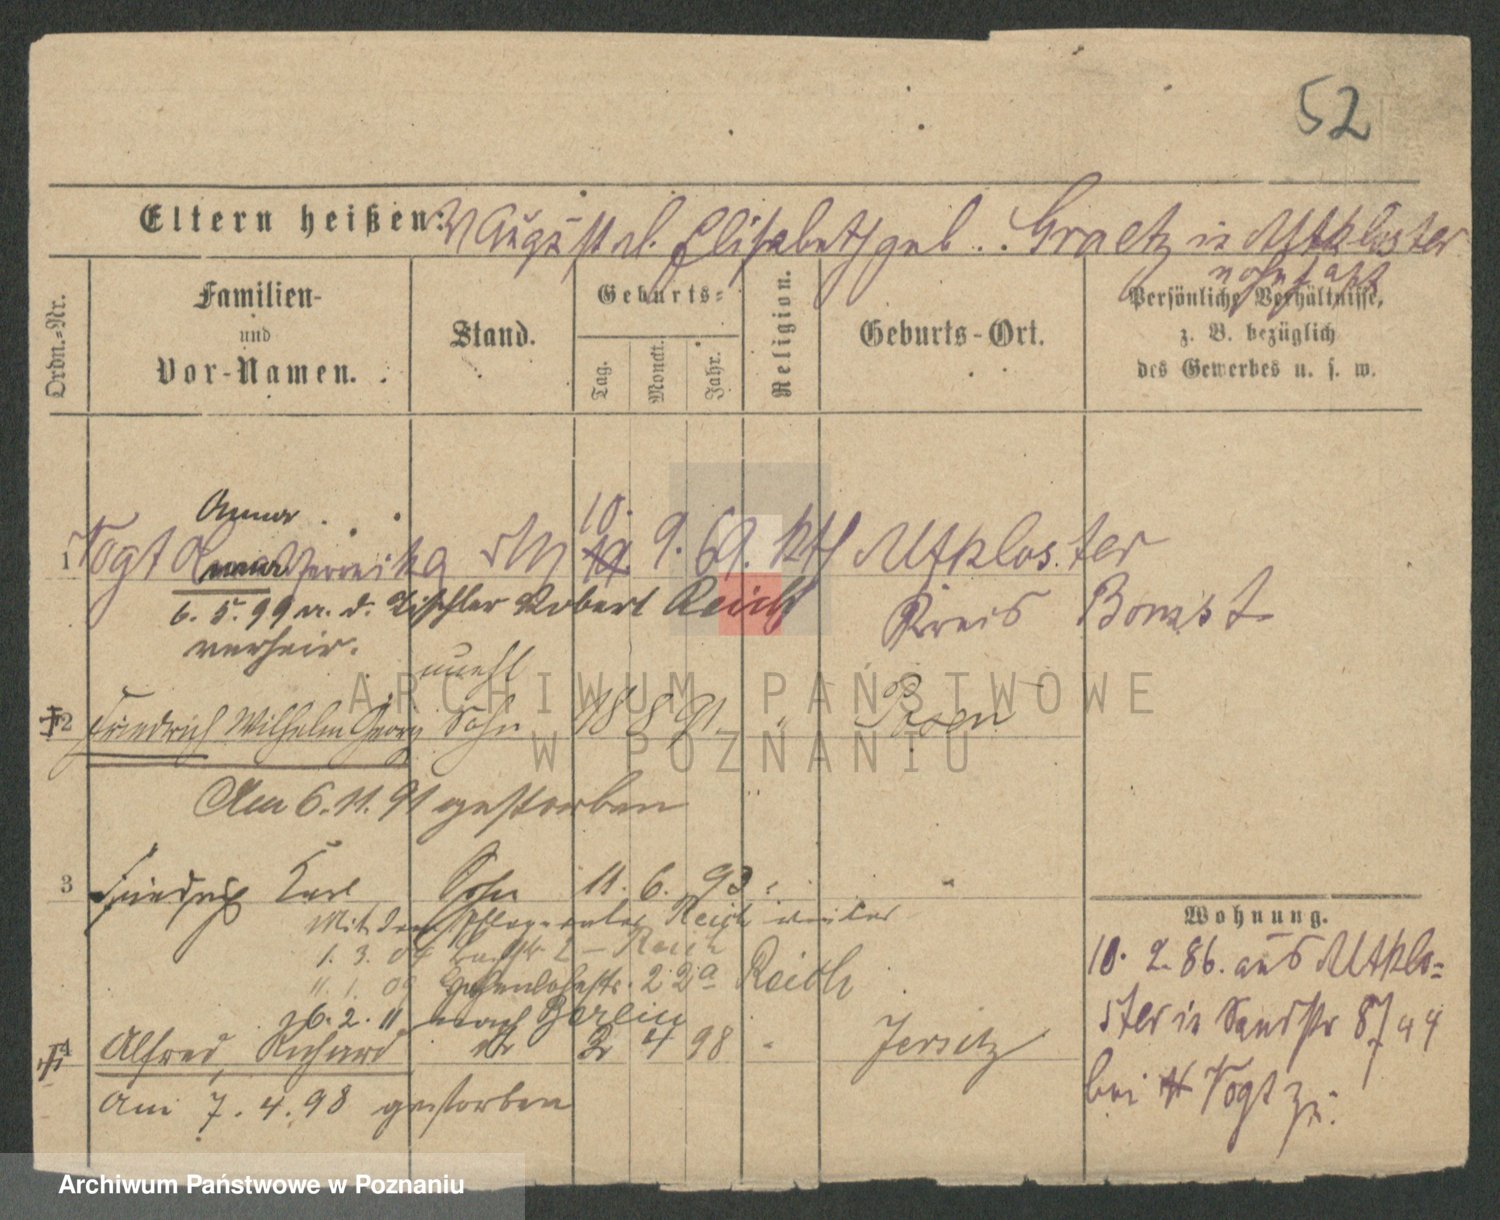 52
Eltern heißen: August u. Elisabeth geb. Graetz in Altkloster
wohnhaft
Ordn.-Nr.
Familien-
und
Vor-Namen.
Stand.
Geburts-
Tag.
Monat.
Jahr.
Religion.
Geburts-Ort.
Persönliche Verhältnisse,
z. B. bezüglich
des Gewerbes u. s. w.
Anna
10.
1 Vogt 9. 69. kth Altkloster
6. 5. 99 m. d. Tischler Robert Reich Kreis Bomst
verheir.
unehl
2 Friedrich Wilhelm Georg Sohn 18 8 91 " Posen
Am 6. 11. 91 gestorben
3 Friedrich Karl Sohn 11. 6. 93 "
Mit dem Pflegevater Reich weiter
1. 3. 04 2 - Reich
11. 1. 09 Hohenlohestr. 22a Reich
26. 2. 11 nach Berlin
4 Alfred, Richard 2 4 98 " Jersitz
am 7. 4. 98 gestorben
Wohnung.
10. 2. 86. aus Altklo-
ster in Sandstr 8
bei Vogt zu.
ARCHIWUM PAŃSTWOWE
W POZNANIU
Archiwum Państwowe w Poznaniu